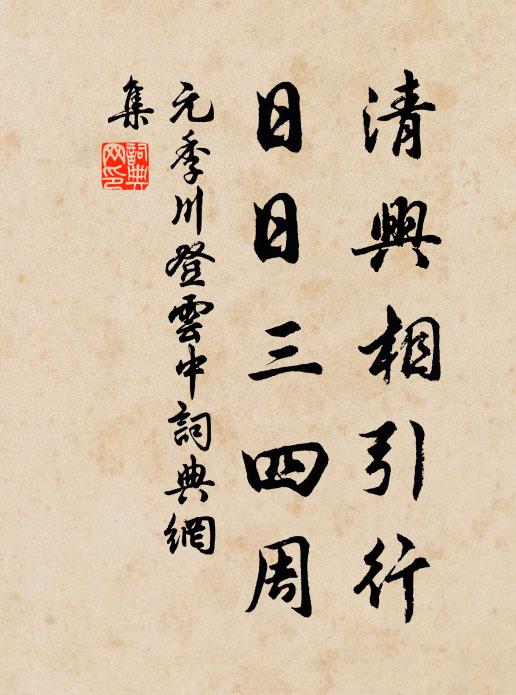 清興相引行
日日三四周
元季川登雲中詞典網
集
詞典
网印